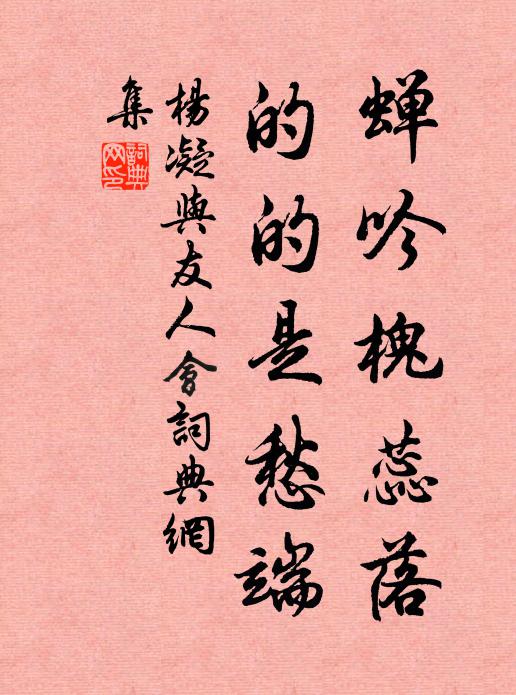 蝉吟槐蕊落
的的是愁端
楊凝與友人會詞典網
集
詞典網印